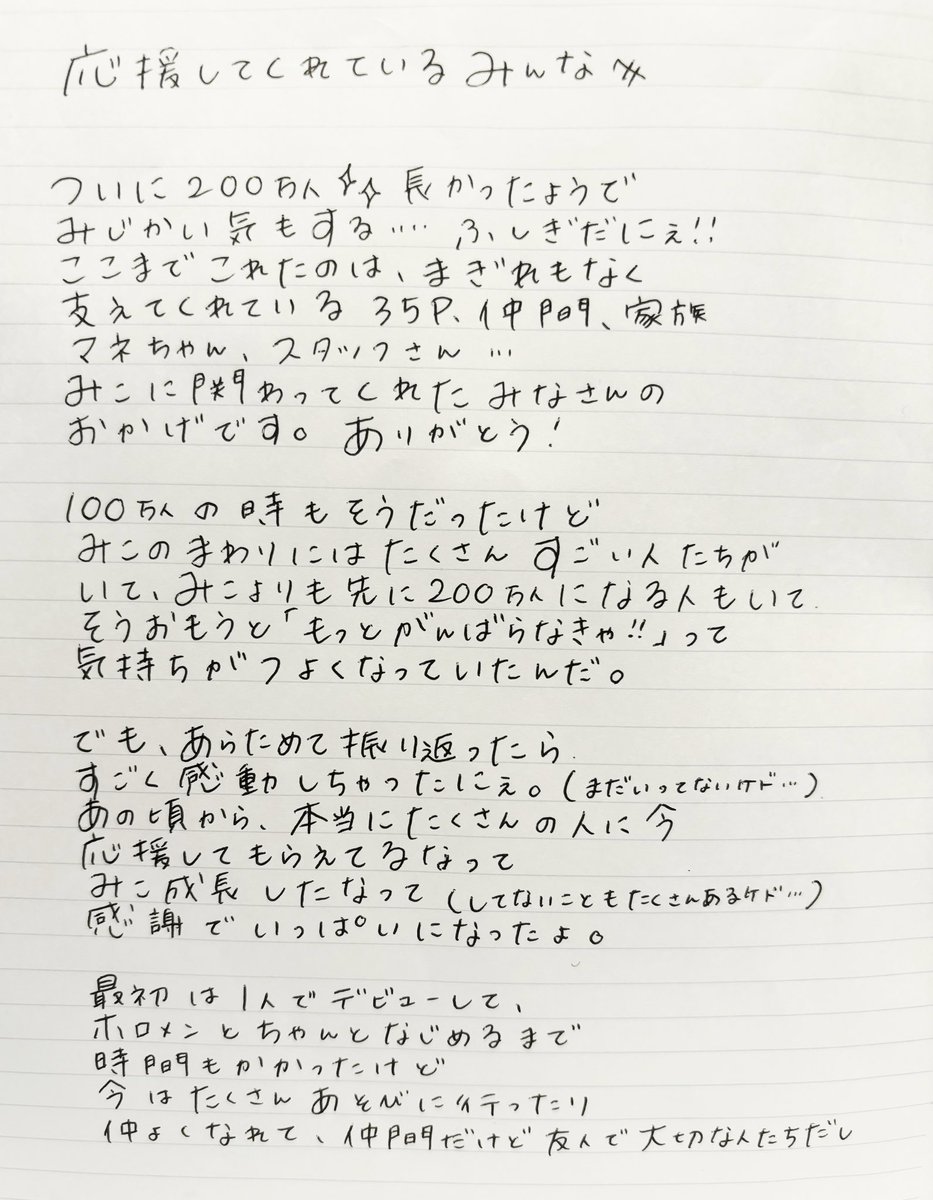 応援してくれているみんなへ
ついに200万人✧✧ 長かったようで
みじかい気もする…… ふしぎだにぇ!!
ここまでこれたのは、まぎれもなく
支えてくれている 35P、仲間、家族
マネちゃん、スタッフさん…
みこに関わってくれた みなさんの
おかげです。 ありがとう!
100万人の時もそうだったけど
みこのまわりには たくさん すごい人たちが
いて、みこよりも先に200万人になる人もいて
そうおもうと「もっとがんばらなきゃ!!」って
気持ちがつよくなっていたんだ。
でも、あらためて振り返ったら
すごく感動しちゃったにぇ。(まだいってないケド…)
あの頃から、本当にたくさんの人に今
応援してもらえてるなって
みこ成長したなって (してないこともたくさんあるケド…)
感謝でいっぱいになったよ。
最初は1人でデビューして、
ホロメンとちゃんとなじめるまで
時間もかかったけど
今はたくさんあそびに行ったり
仲よくなれて、仲間だけど友人で大切な人たちだし